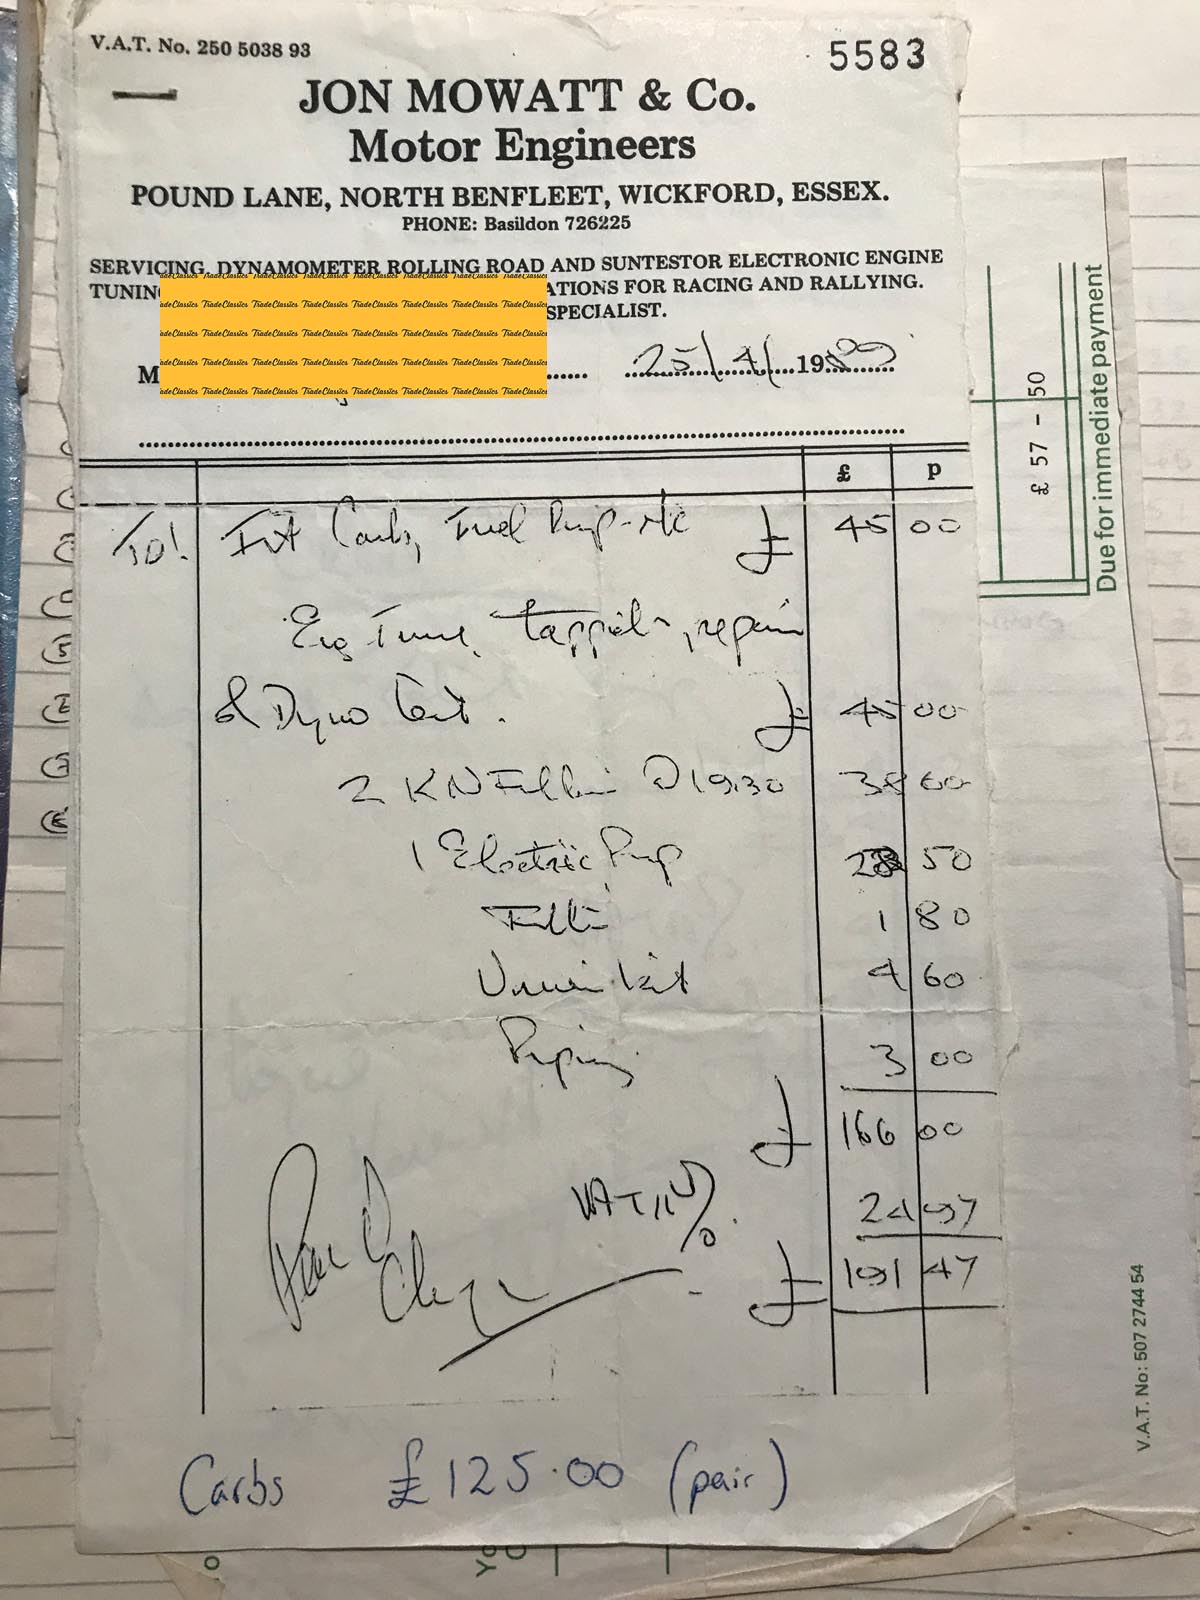 V.A.T. No. 250 5038 93
5583
JON MOWATT & Co.
Motor Engineers
POUND LANE, NORTH BENFLEET, WICKFORD, ESSEX.
PHONE: Basildon 726225
SERVICING, DYNAMOMETER ROLLING ROAD AND SUNTESTOR ELECTRONIC ENGINE
TUNING ATIONS FOR RACING AND RALLYING.
SPECIALIST.
TradeClassics
M 25/4/ 19
£ p
To! Fit Carbs, Fuel Pump etc £ 45 00
Eng Tune, tappets, repair
& Dyno test. £ 45 00
2 KN @ 19.30 38 60
1 Electric Pump 28 50
1 80
Union kit 4 60
Piping 3 00
£ 166 00
VAT 15% 24 97
£ 191 47
Paid
Carbs £125.00 (pair)
£ 57 - 50
Due for immediate payment
V.A.T. No: 507 2744 54